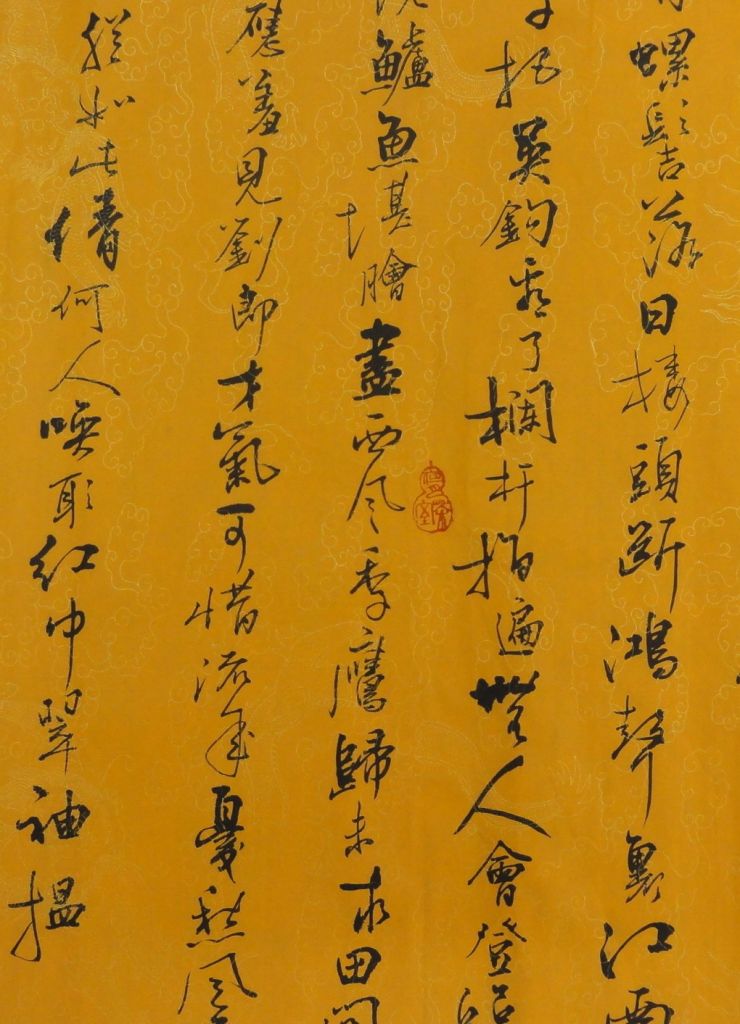 螺髻落日樓頭斷鴻聲裏江
子把吳鈎看了欄杆拍遍無人會登臨
鱸魚堪膾盡西風季鷹歸未求田問
應羞見劉郎才氣可惜流年憂愁風
猶如此倩何人喚取紅巾翠袖揾